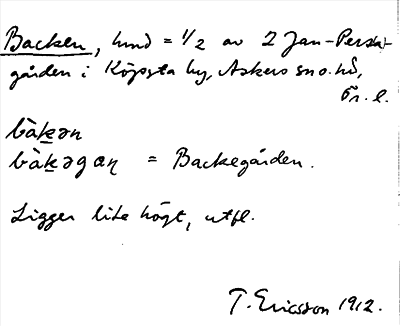 Backen, hmd = 1/2 av 2 Jan-Persa-
gården i Köpsta by, Askers sn o. hd,
Ör. l.
bàkən
bàkəgaɳ = Backegården.
Ligger lite högt, utfl.
T. Ericsson 1912.